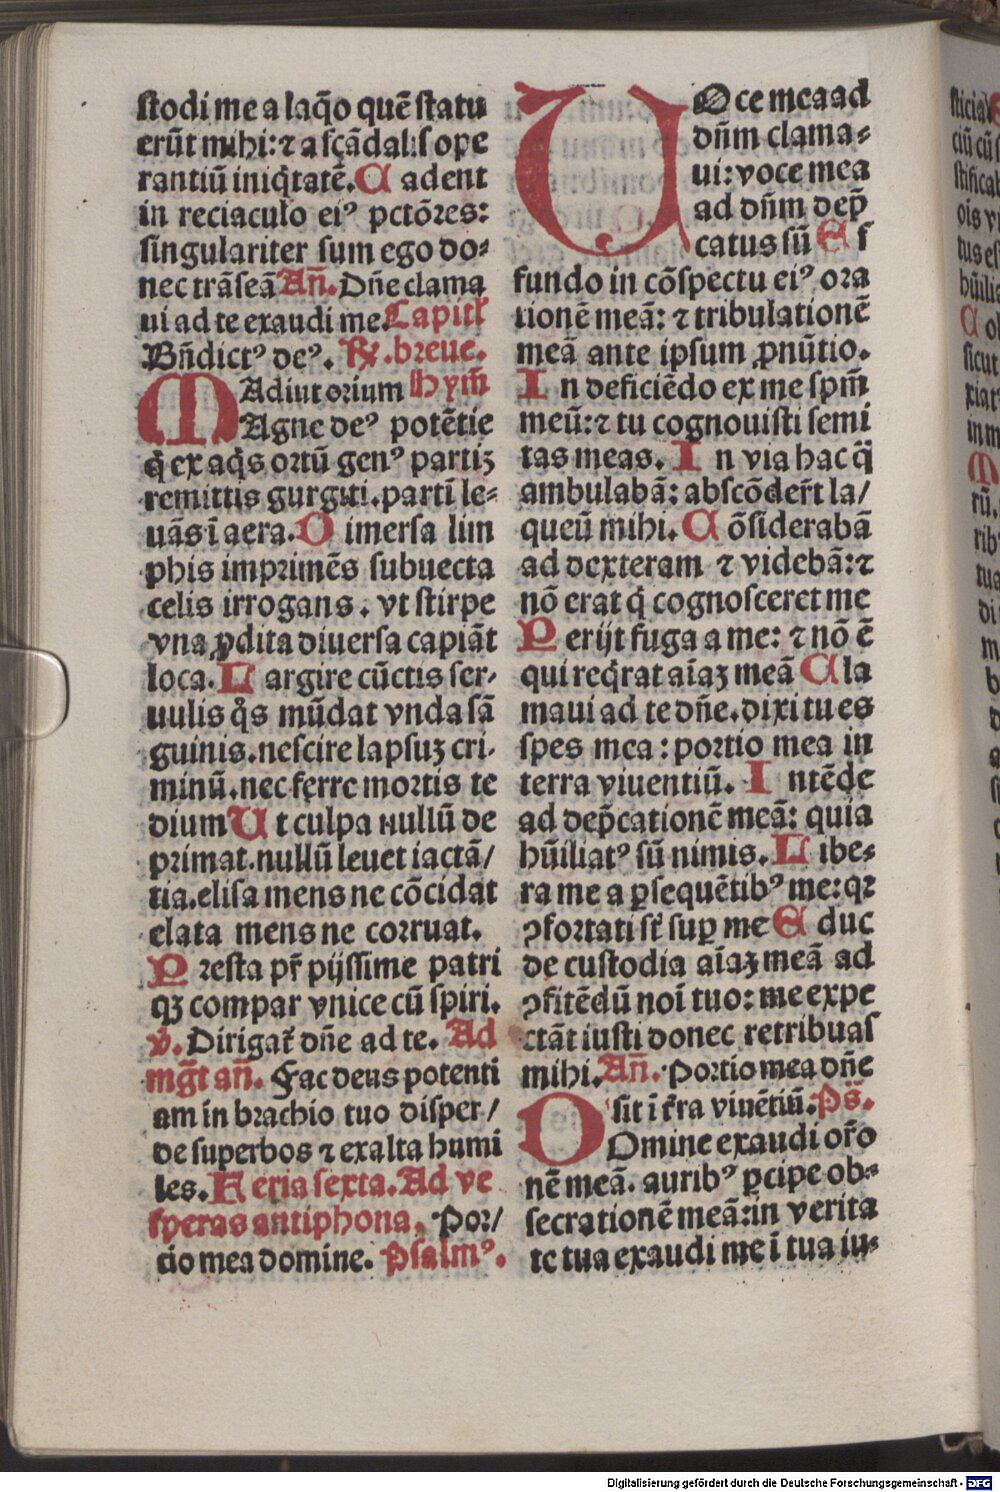 ſtodi me a laq̄o quē ſtatu
erūt mihi: ⁊ a ſcādalıſ ope
rantiū iniq̄tatē. C adent
in reciaculo eiꝰ pctōres:
ſingulariter ſum ego do⸗
nec trāſeā An̄. Dn̄e clama
ui ad te exaudi me. Capitl̓
Bn̄dictꝰ deꝰ. R̷. breue.
Adiutorium Hym̄
MAgne deꝰ potētie
q̄ ex aq̄s ortū genꝰ partiꝫ
remittis gurgiti. partī le⸗
uās ī aera. D imerſa lim
phis imprimēs ſubuecta
celis irrogans. vt ſtirpe
vna ꝓdita diuerſa capiāt
loca. L argire cūctis ſer⸗
uulis q̄s mūdat vnda ſā
guinis. neſcire lapſuꝫ cri⸗
minū. nec ferre mortis te
dium U t culpa nullū de
primat. nullū leuet iactā/
tia. eliſa mens ne cōcidat
elata mens ne corruat.
P reſta pr̄ pijſſime patri
qꝫ compar vnice cū ſpiri.
v̓. Dirigat̓ dn̄e ad te. Ad
mgt̄ an̄. Fac deus potenti
am in brachio tuo diſper/
de ſuperbos ⁊ exalta humi
les. Feria ſexta. Ad ve
ſperas antiphona. Por/
tio mea domine. Pſalmꝰ.
UOce mea ad
dn̄m clama⸗
ui: voce mea
ad dn̄m dep̄
catus ſū E f
fundo in cōſpectu eiꝰ ora
tionē meā: ⁊ tribulationē
meā ante ipſum ꝓnūtio.
I n deficiēdo ex me ſpm̄
meū: ⁊ tu cognouiſti ſemi
tas meas. I n via hac q̄
ambulabā: abſcōder̄t la/
queū mihi. C ōſiderabā
ad dexteram ⁊ videbā: ⁊
nō erat q̄ cognoſceret me
P erijt fuga a me: ⁊ nō ē
qui req̄rat aīaꝫ meā C la
maui ad te dn̄e. dixi tu es
ſpes mea: portio mea in
terra viuentiū. I ntēde
ad dep̄cationē meā: quia
hūiliatꝰ ſū nimis. L ibe⸗
ra me a ꝑſequētibꝰ me: qꝛ
ꝯfortati ſt̄ ſuꝑ me E duc
de cuſtodia aīaꝫ meā ad
ꝯfitēdū noī tuo: me expe
ctāt iuſti donec retribuaſ
mihi. An̄. Portio mea dn̄e
ſit ī t̄ra viuētiū. Ps̄.
DOmine exaudi or̄o
nē meā. auribꝰ ꝑcipe ob⸗
ſecrationē meā: in verita
te tua exaudi me ī tua iu⸗
Digitalisierung gefördert durch die Deutsche Forschungsgemeinschaft - DFG